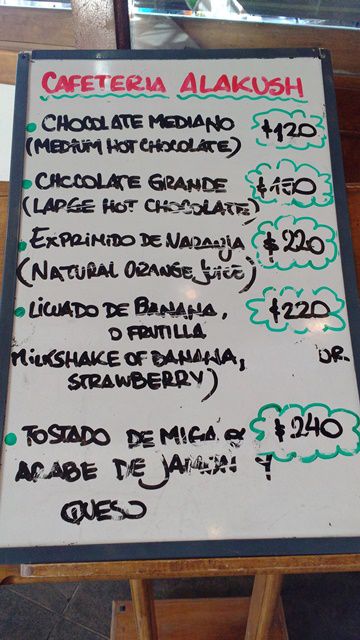 CAFETERIA ALAKUSH
CHOCOLATE MEDIANO $120
(MEDIUM HOT CHOCOLATE)
CHOCOLATE GRANDE $150
(LARGE HOT CHOCOLATE)
EXPRIMIDO DE NARANJA $220
(NATURAL ORANGE JUICE)
LICUADO DE BANANA, $220
O FRUTILLA
MILKSHAKE OF BANANA, OR
STRAWBERRY)
TOSTADO DE MIGA O $240
ARABE DE JAMON Y
QUESO